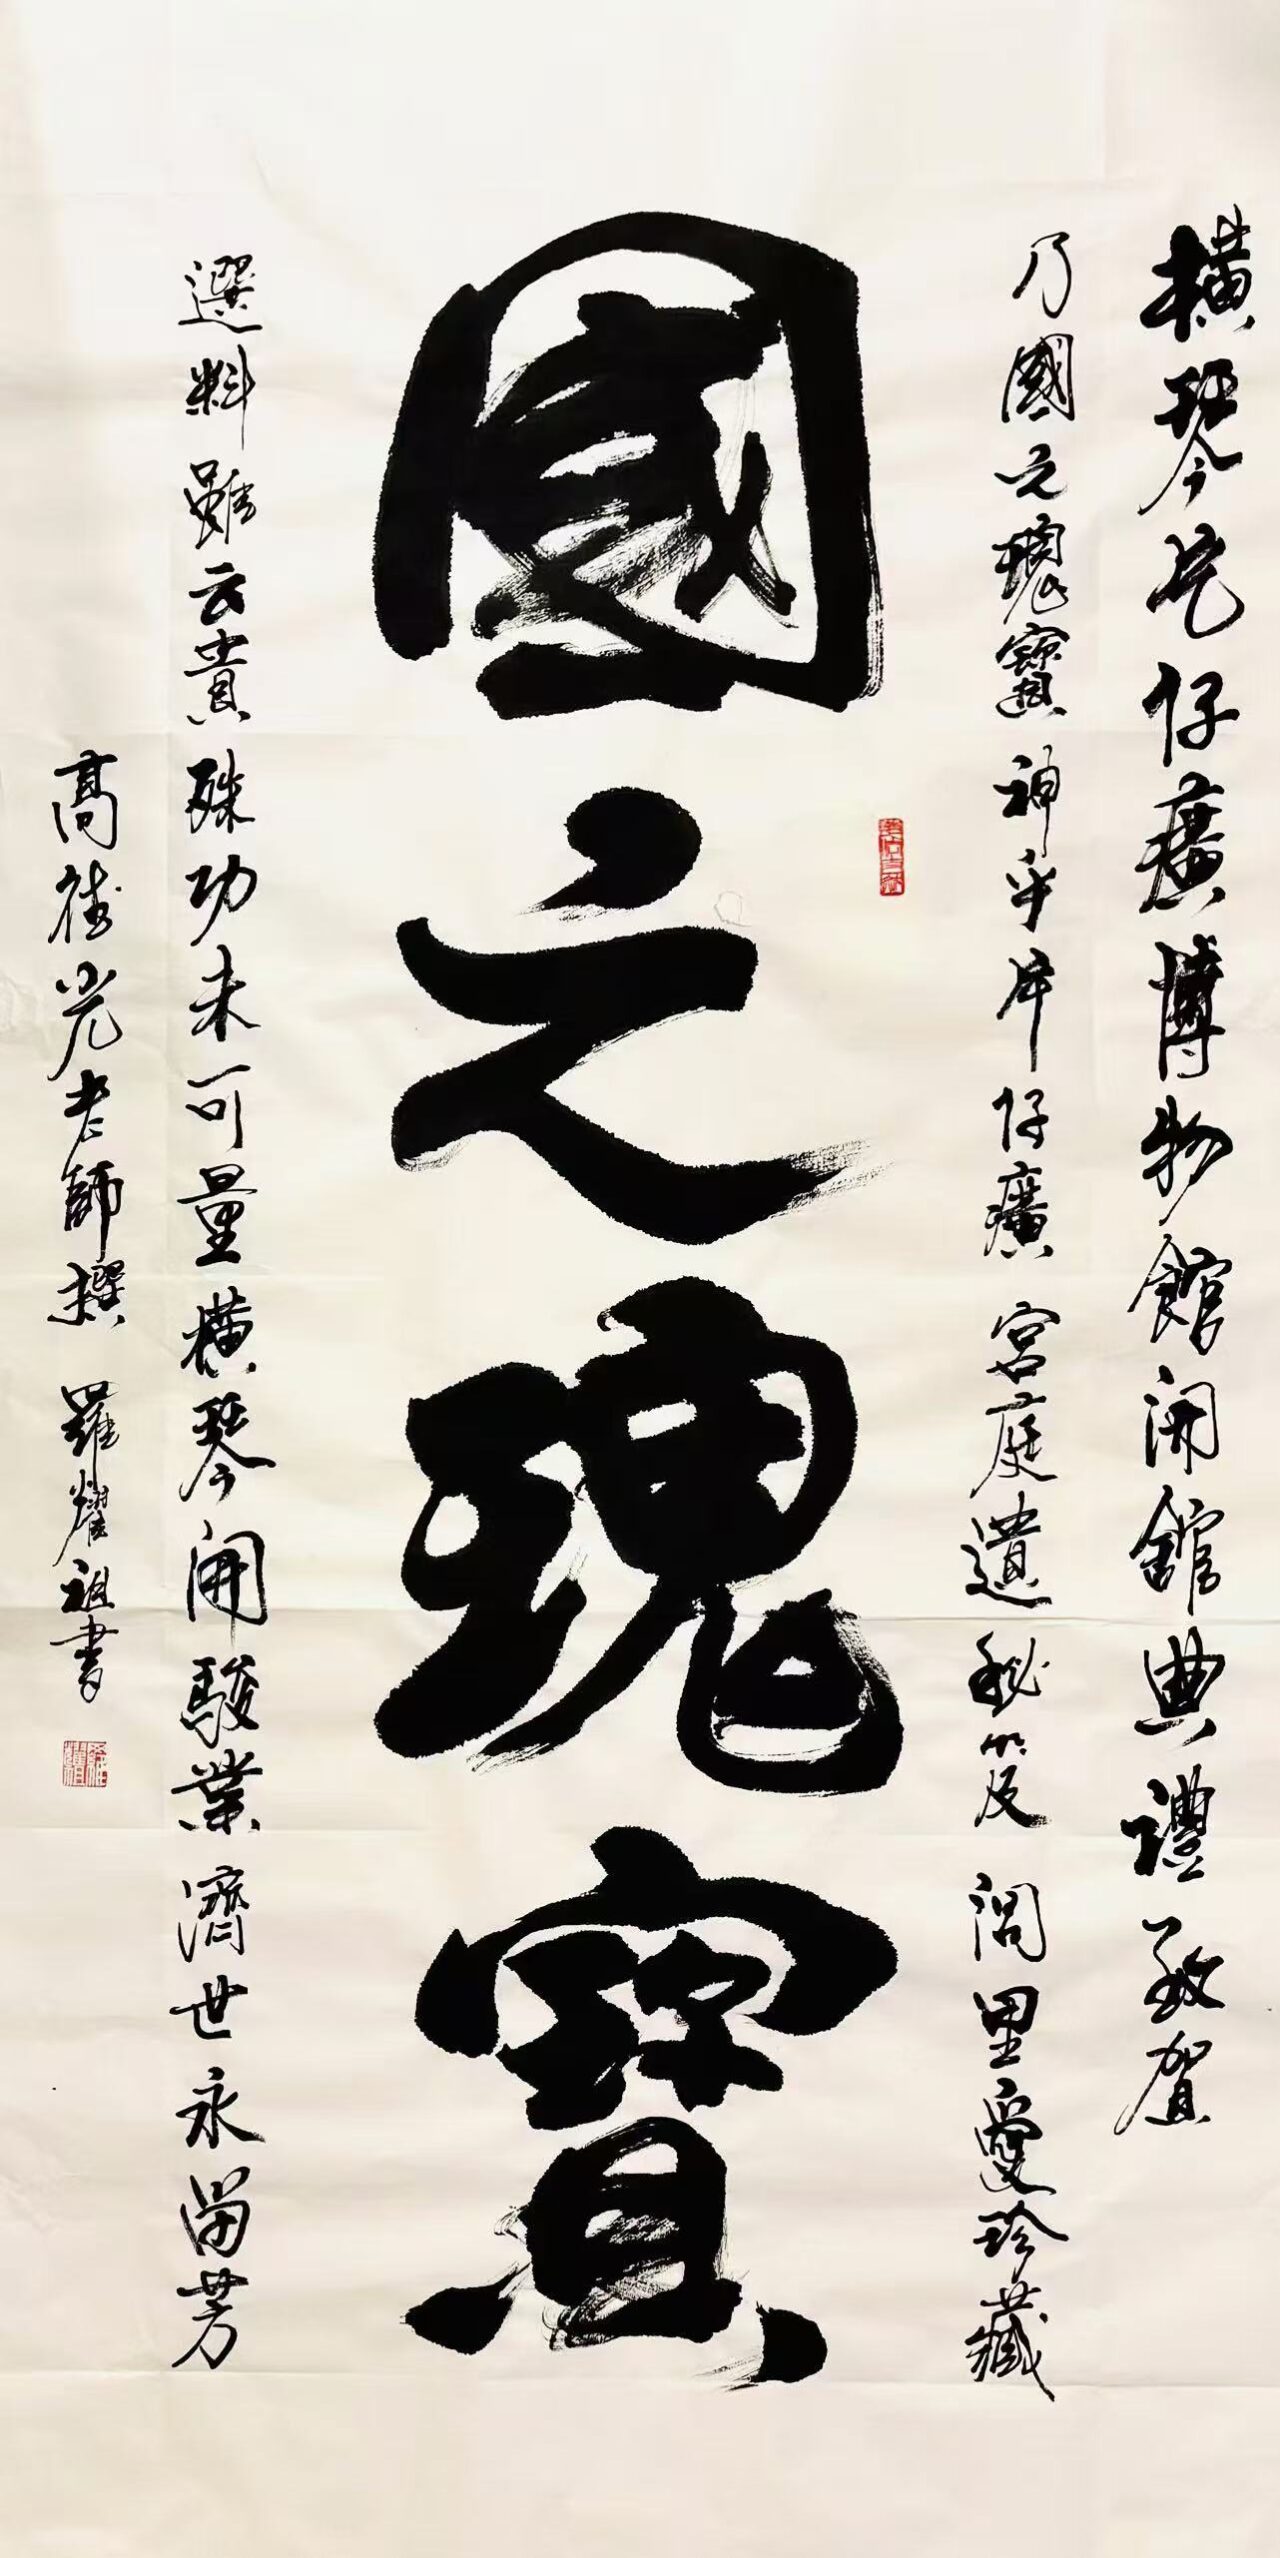 橫琴片仔癀博物館開館典禮致賀
乃國之瑰寶神乎片仔癀宮庭遺秘笈閭里愛珍藏
國之瑰寶
選料雖云貴殊功未可量橫琴開駿業濟世永留芳
高德光老師撰 羅耀祖書